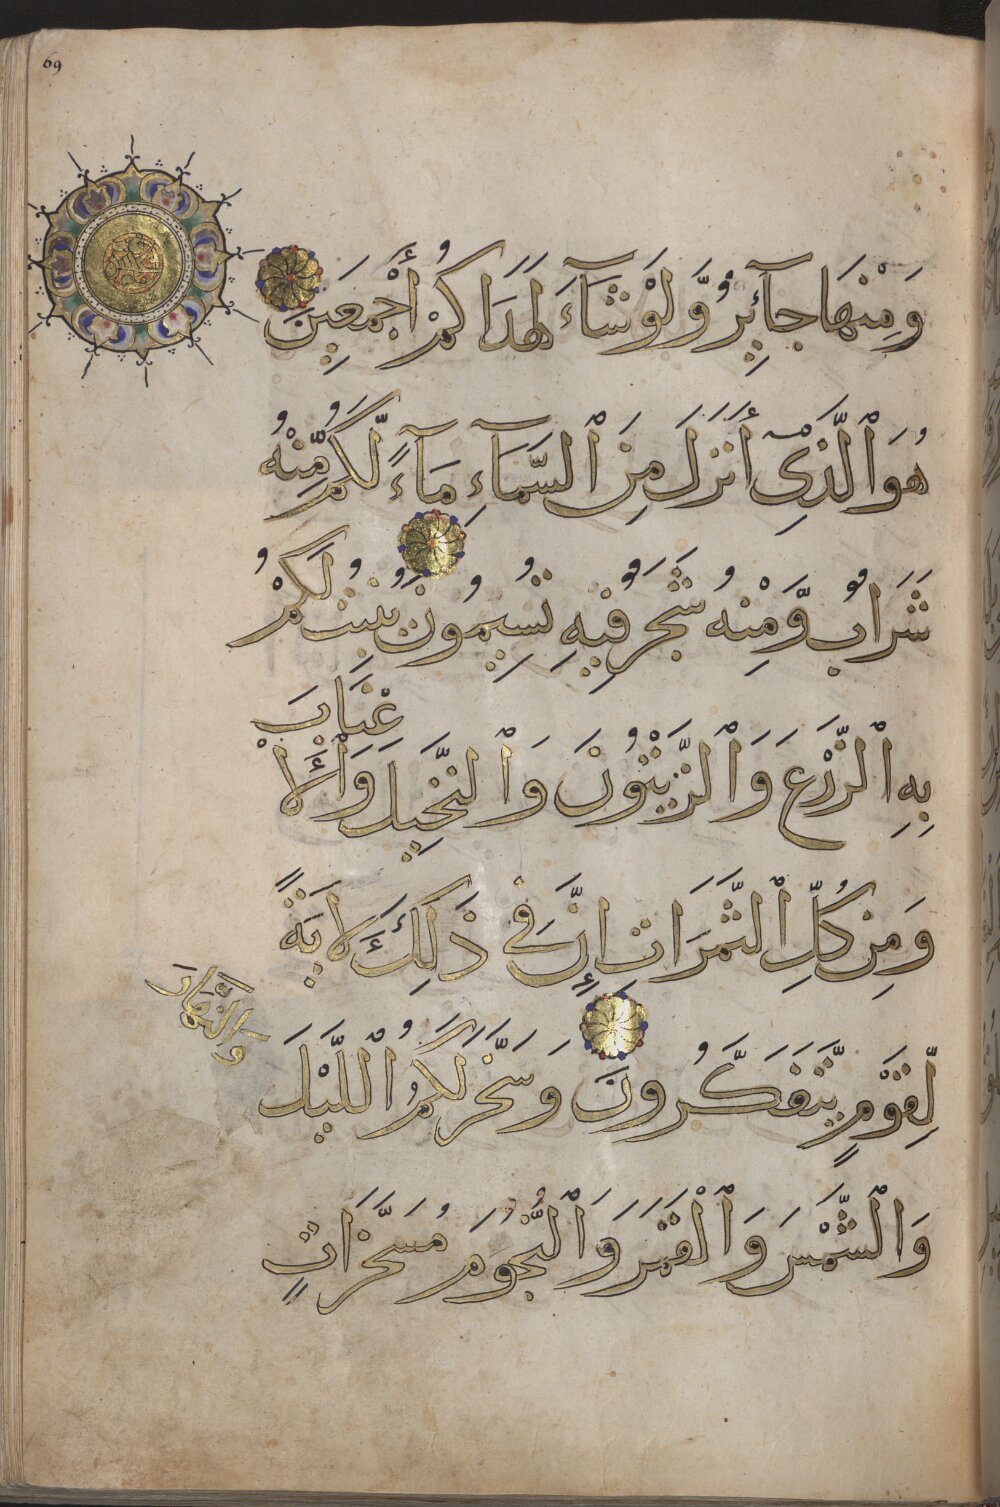 69
وَمِنْهَا جَآئِرٌ وَّلَوْ شَآءَ لَهَدَاكُمْ أَجْمَعِينَ
هُوَ ٱلَّذِىٓ أَنزَلَ مِنَ ٱلسَّمَآءِ مَآءً لَّكُم مِّنْهُ
شَرَابٌ وَّمِنْهُ شَجَرٌ فِيهِ تُسِيمُونَ يُنۢبِتُ لَكُمْ
بِهِ ٱلزَّرْعَ وَٱلزَّيْتُونَ وَٱلنَّخِيلَ وَٱلْأَ
عْنَابَ
وَمِن كُلِّ ٱلثَّمَرَاتِ إِنَّ فِى ذَلِكَ لَأَيَةً
لِّقَوْمٍ يَّتَفَكَّرُونَ وَسَخَّرَ لَكُمُ ٱللَّيْلَ
وَالنَّهَارَ
وَٱلشَّمْسَ وَٱلْقَمَرَ وَٱلنُّجُومَ مُسَخَّرَاتٍ